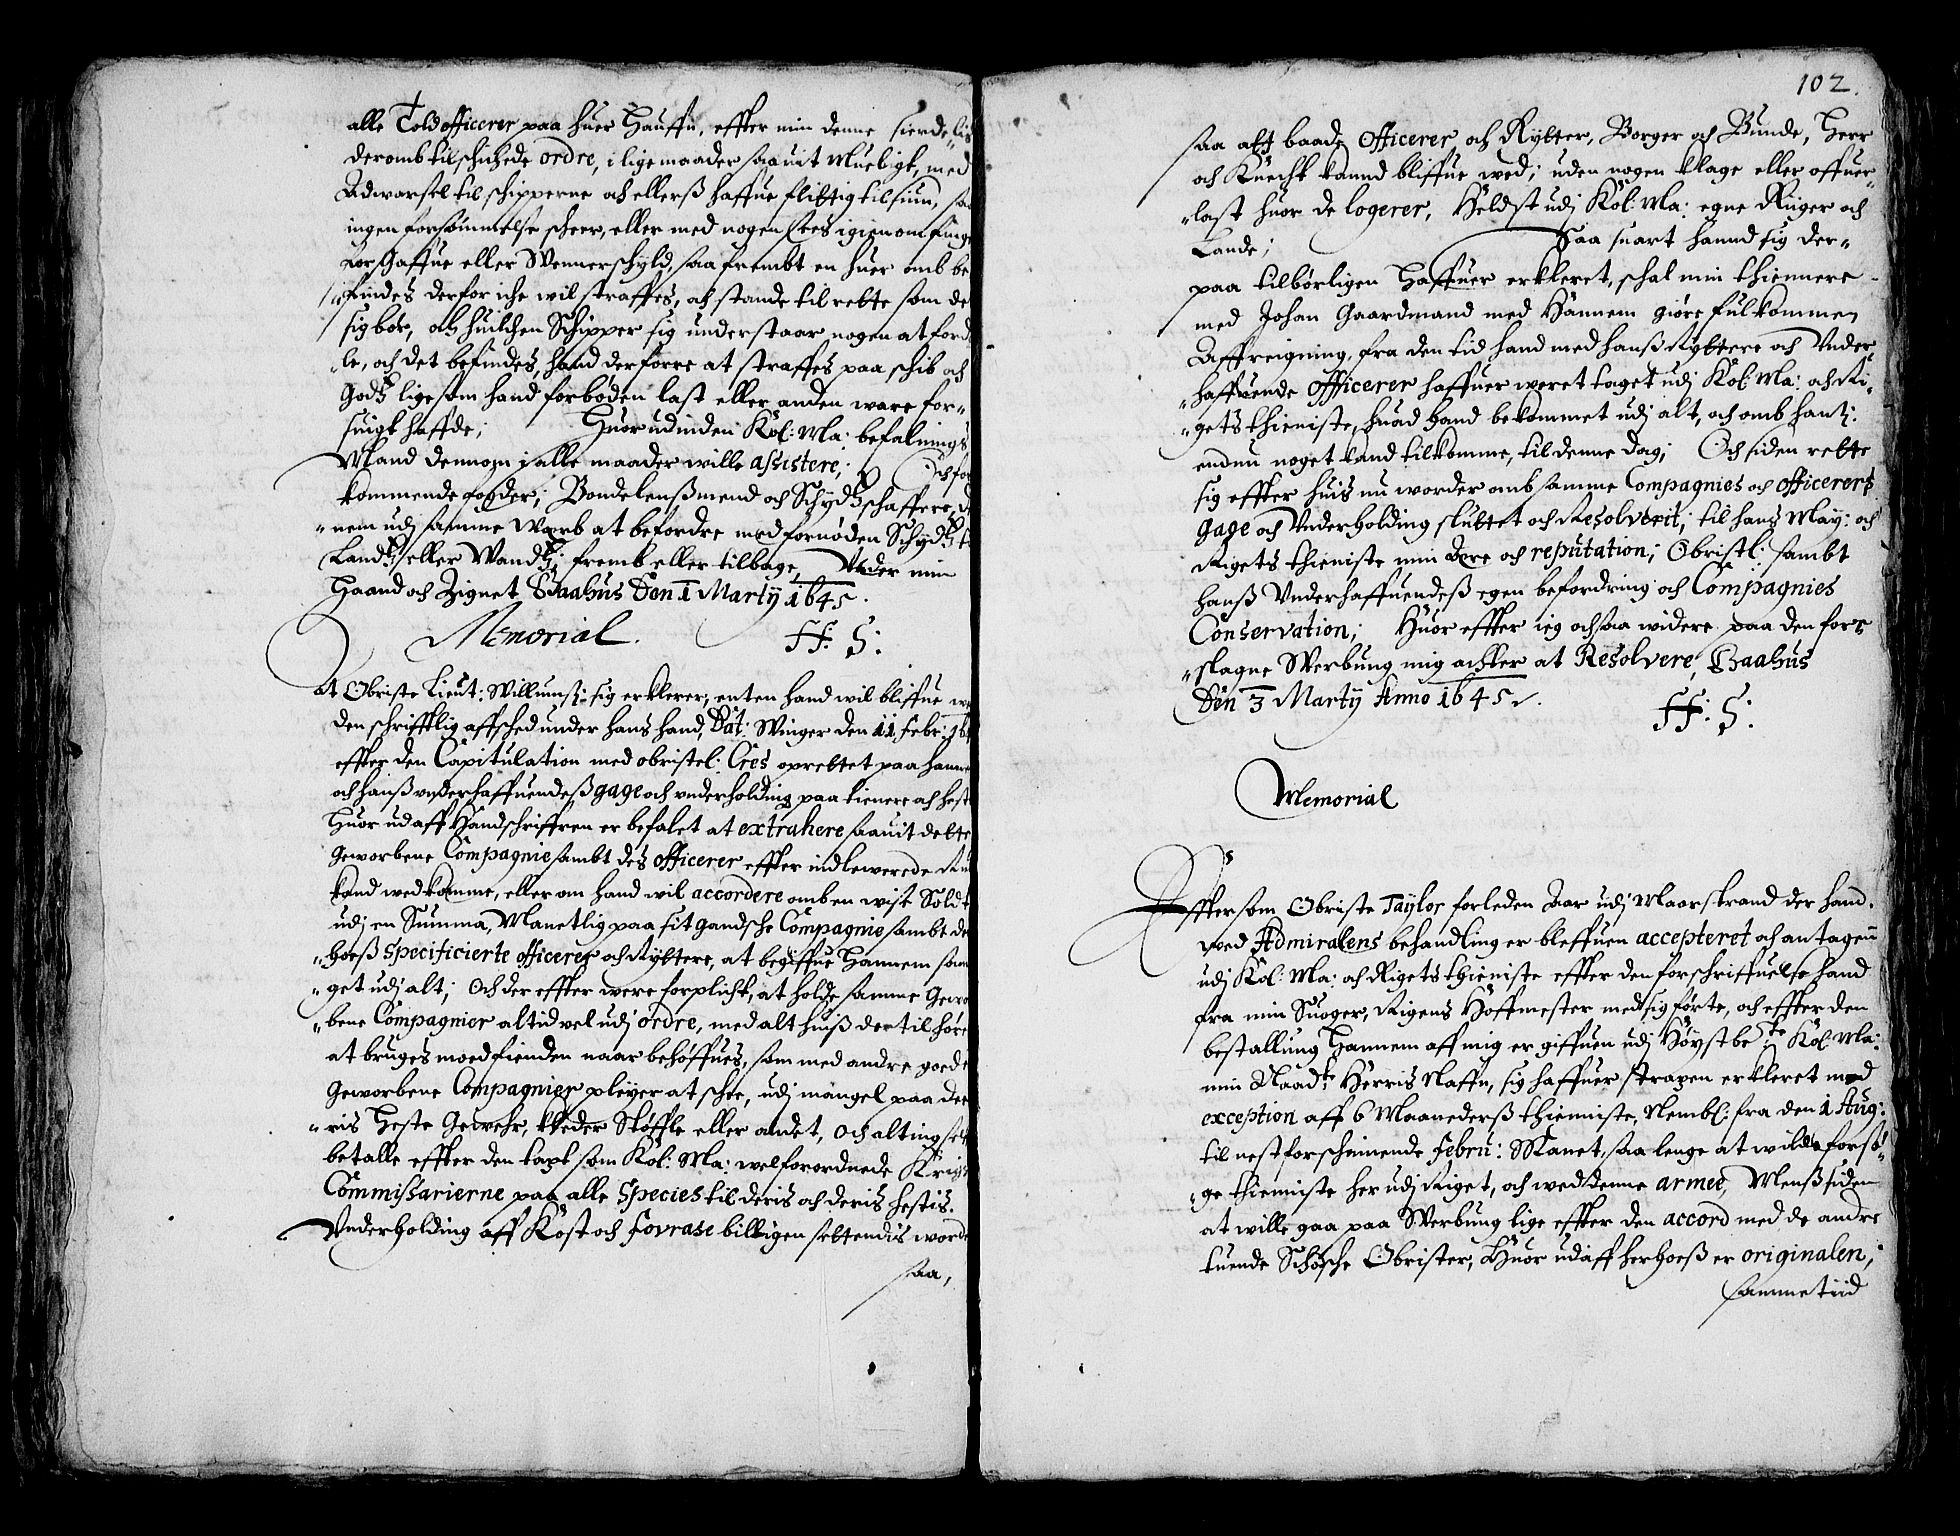 alle Toldofficerer paa huer Hauffn, effter min denne sierdelis
deromb tilschichede ordre, i lige maader saauit Mueligt, med
Adwarsel til schipperne och ellerß haffue flittig tilsiun, saa
ingen forsømmelse scheer, eller med nogen sees igiennom finge
for Gaffue eller Wennerschyld, saa frembt en huer omb be
"findes derfor iche wil straffes, och stande til rette som de
sig bør, och huilchen Schipper sig understaar nogen at ford
"le, och det befindes, hand derforre at straffes paa schib och
Godtz ligesom hand forbøden last eller anden ware for"
suigt haffde; Huor udinden Kol: Ma: befalnings
Mand dennom i alle maader wille assistere; Och for
kommende fogder; Bondelensßmend och Schydtzschaffere, d
"nem udj samme Werb at befordre med fornøden Schydtz t
Landtz eller Wandtz; fremb eller tilbage, Under min
Haand och Zignet Baahus Den 1 Martij 1645.
Memorial. H: S:
At Obriste Lieut: Willumß: sig erklerer, enten hand wil bliffue we
den schrifftlig affsched under hans hand, Dat: Winger den 11 Febr: 164
effter den Capitulation med obristel: Cres oprettet paa hanne
och hanß underhaffuendeß gage och underholding paa tienere och hest
Huor udaff Handschrifften er befalet at extrahere saauit dette
Geworbene Compagnie sambt des officerer effter indlewerede Ru
kand wedkomme, eller om hand wil accordere omb en wist Soldt
udj en Summa, Manetlig paa sit gandsche Compagnie sambt de
"hoeß specificierte officerer och Ryttere, at begiffue Hannem saa
"get udj alt; Och der effter were forplicht, at holde samme Gewo
"bene Compagnier altid vel udj ordre, med alt huiß der til høre
at bruges moed fienden naar behøffues, som med andre goede
Geworbene Compagnier pleyer at schee, udj mangel paa de
"ris Heste Gewehr, kleder Støffle eller andet, och alting selff
betalle effter den taxt som Kol: Ma: welforordnede Krigs
Commissarierne paa alle Species til deris och deris hestis.
Underholding aff Kost och fovrase billigen settendis worde
saa,
102.
saa att baade officerer och Rytter, Borger och Bunde, Herr
och Knecht kannd bliffue wed; uden nogen klage eller offuer"
"last huor de logerer, Heldst udj Kol: Ma: egne Riiger och
Lande; Saa snart hannd sig der"
paa tilbørligen Haffuer erkleret, schal min thiennere
med Johan Gaardmand med Hannem giøre fulkommen
Affreigning, fra den tid hand med hanß Ryttere och Under"
"haffuende officerer haffuer weret taget udj Kol: Ma: och Ri"
"gets thieniste, huad hand bekommet udj alt, och omb hanß:
endnu noget kand tilkomme, til denne dag; Och siden rette
sig effter huis nu worder omb samme Compagnies och officerers
gage och Underholding sluttet och Resolverit; til hans May: och
Rigets thieniste min Ære och reputation; Obristl: sambt
hanß Underhaffuendeß egen befordring och Compagnies
Conservation; Huor effter ieg ochsaa widere paa den fore
"slagne Werbung mig achter at Resolvere, Baahus
Den 3 Martij Anno 1645. H: S:
Memorial
Effter som Obriste Taylor forleden Aar udj Maarstrand der hand.
wed Admiralens behandling er bleffuen accepteret och antagen
udj Kol: Ma: och Rigets thieniste effter den forschriffuelse hand
fra min Suoger, Rigens Hoffmester med sig førte, och effter den
bestallung Hannem aff mig er giffuen udj Høystbete Kol: Ma:
min Naadte Herris Naffn, sig haffuer strapen erkleret med
exception aff 6 Maanederß thienniste, Nembl: fra den 1 Aug:
til nestforscheinende Febru: Manet, saa lenge at wille forsø"
"ge thienniste her udj Riget, och wed denne armee, Menß siden
at wille gaa paa Werbung lige effter den accord med de andre
tuende Schosche Obrister, Huor udaff herhoeß er originalen;
samme tiid